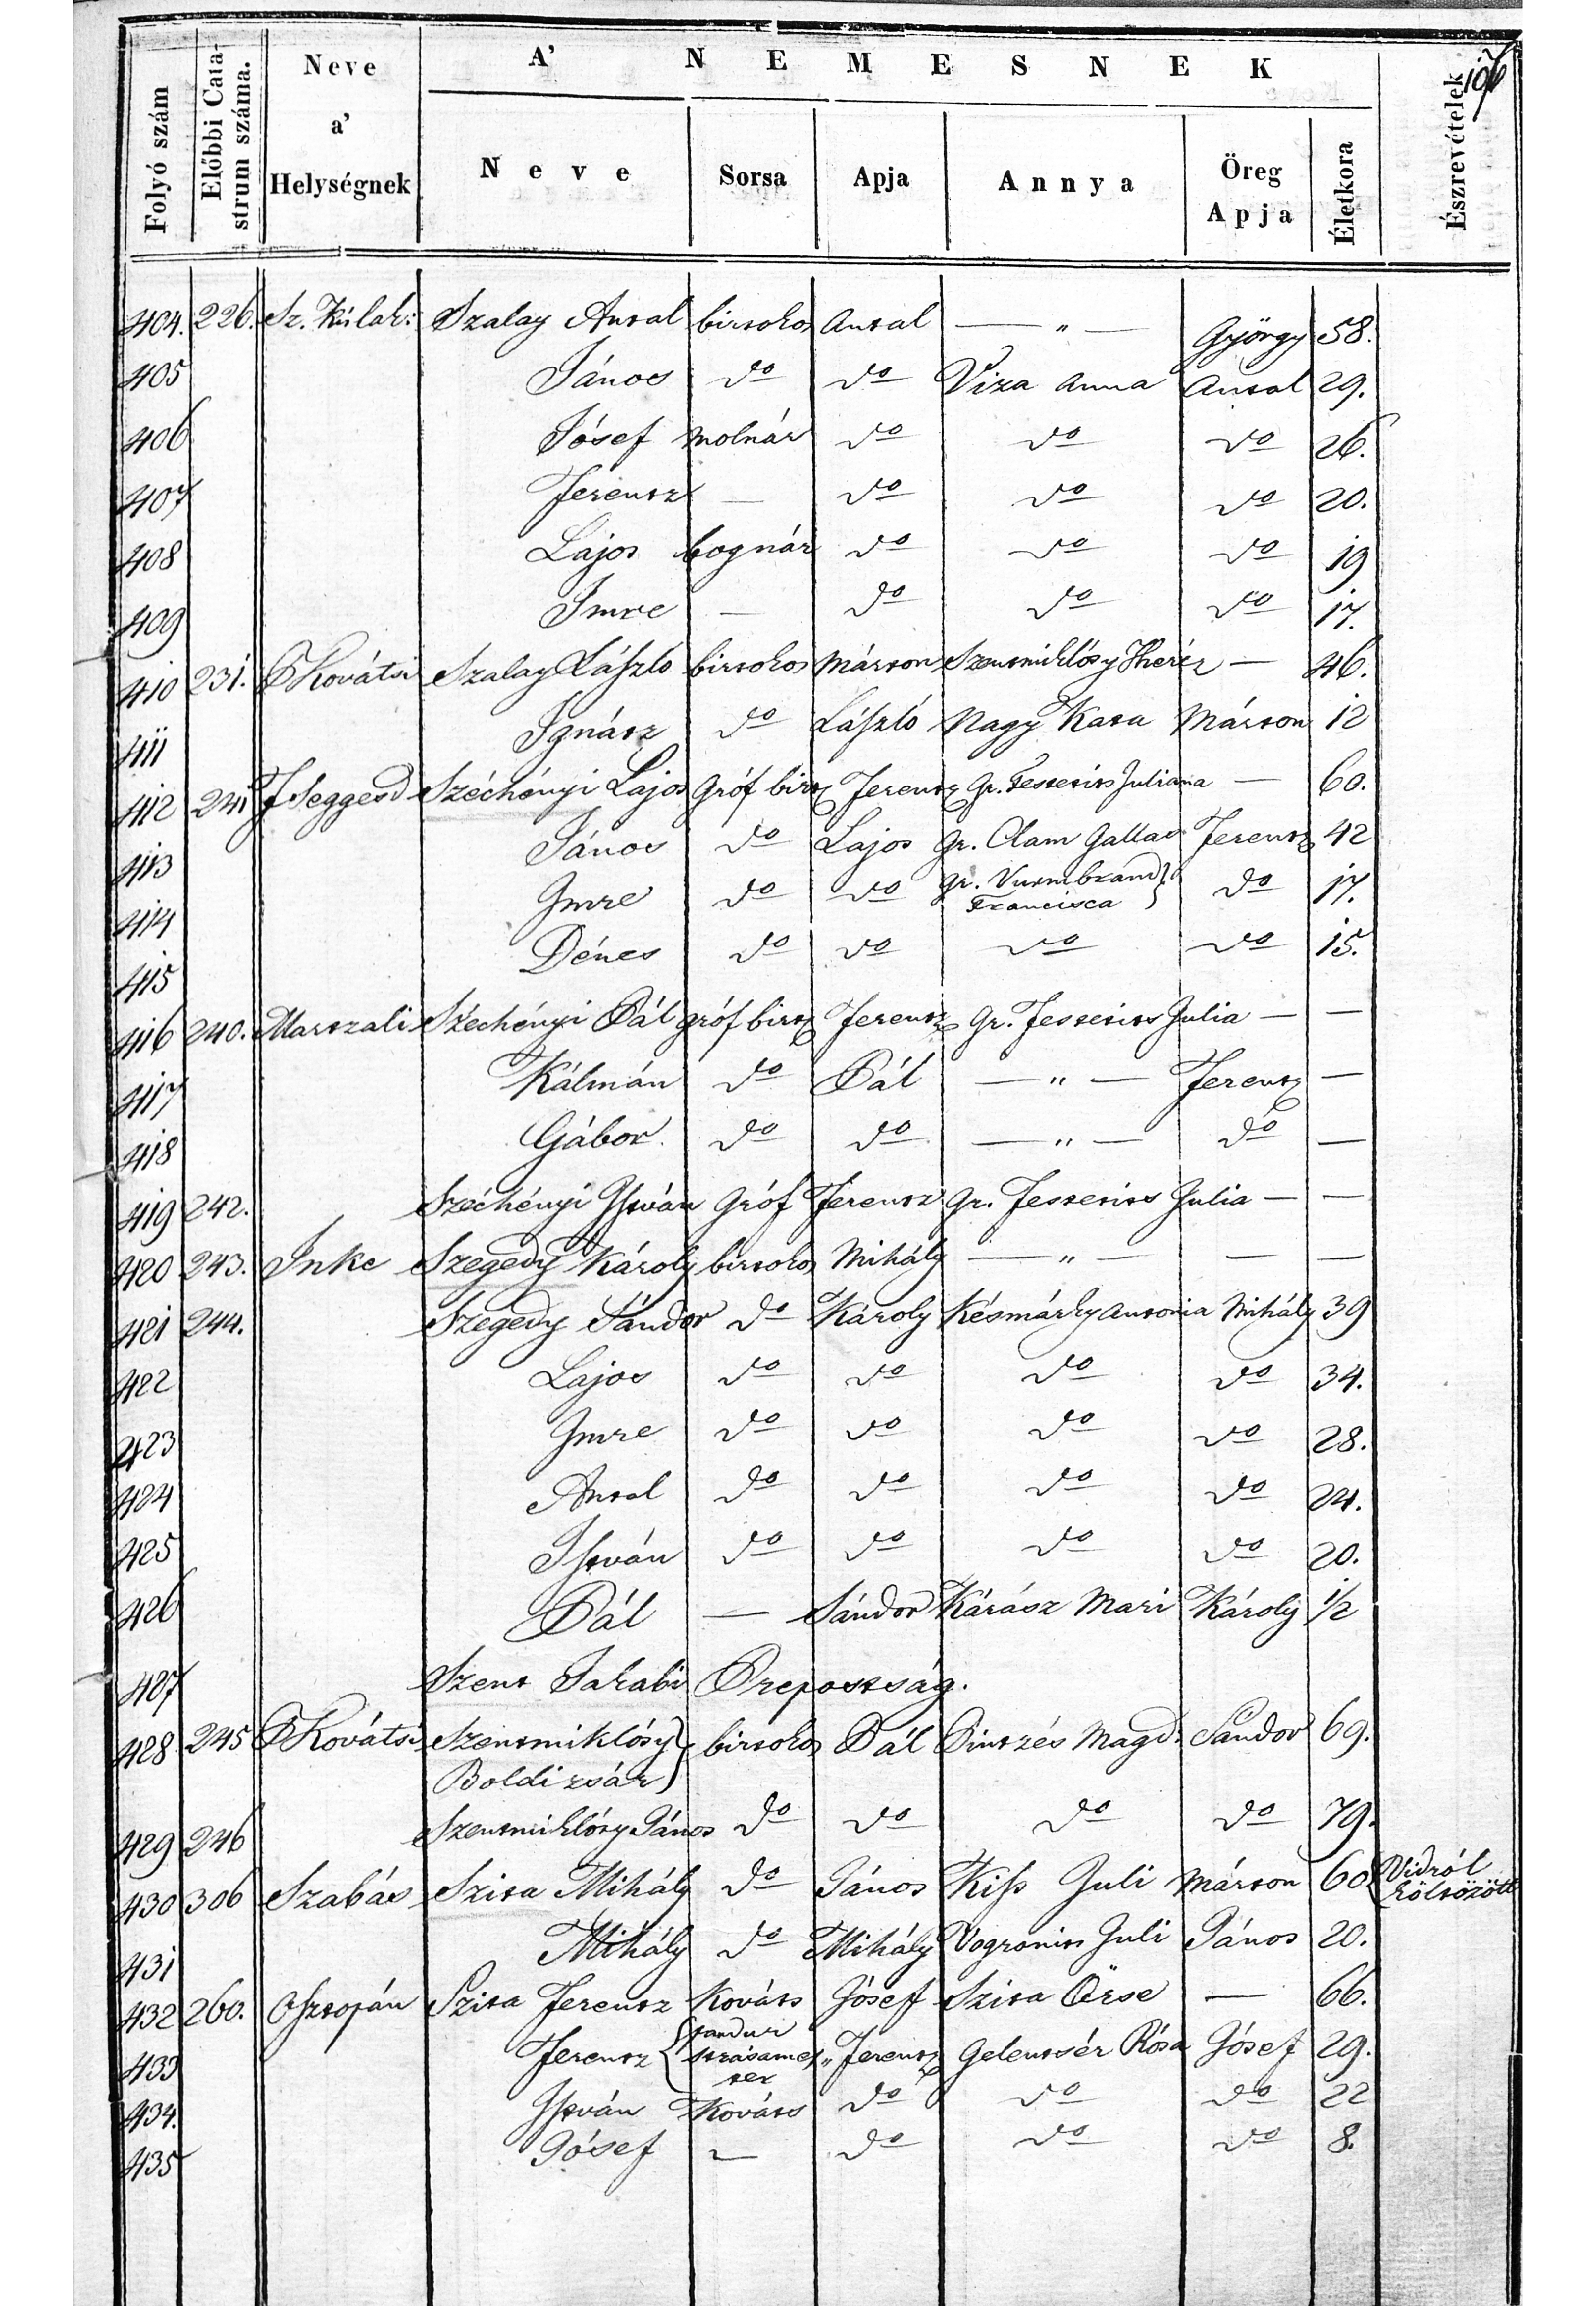 A' NEMESNEK
Folyó szám
Előbbi Catastrum száma.
Neve a' Helységnek
Neve
Sorsa
Apja
Annya
Öreg Apja
Életkora
Észrevételek
404. 226. Sz. Kir. lak: Szalay Antal birtokos Antal — " — György 58.
405 János do do Viza Anna Antal 29.
406 Jósef molnár do do do 26.
407 Ferentz — do do do 20.
408 Lajos bognár do do do 19
409 Imre — do do do 17.
410 231. Kovátsi Szalay László birtokos Márton Szentmiklósy Theréz — 46.
411 Ignátz do László Nagy Kata Márton 12
412 241 F Seggesd Széchényi Lajos Gróf birt Ferentz Gr. Festetits Juliana — 60.
413 János do Lajos Gr. Clam Gallas Ferentz 42
414 Imre do do gr. Vurmbrand Francisca do 17.
415 Dénes do do do do 15.
416 240. Martzali Széchényi Pál gróf birt Ferentz Gr. Festetits Julia — —
417 Kálmán do Pál — " — Ferentz —
418 Gábor do do — " — do —
419 242. Széchényi István Gróf Ferentz gr. Festetits Julia — —
420 243. Inke Szegedy Károly birtokos Mihály — " — — —
421 244. Szegedy Sándor do Károly Késmárky Antonia Mihály 39
422 Lajos do do do do 34.
423 Imre do do do do 28.
424 Antal do do do do 24.
425 István do do do do 20.
426 Pál — Sándor Kárász Mari Károly 1/2
427 Szent Jakabi Prepostság.
428 245 Kovátsi Szentmiklósy birtokos Pál Pintzés Magd. Sándor 69.
Boldizsár
429 246 Szentmiklósy János do do do do 79.
430 306 Szabás Szita Mihály do János Kiss Juli Márton 60 Vidról
költözött
431 Mihály do Mihály Vogronits Juli János 20.
432 260. Osztopán Szita Ferentz Kováts Jósef Szita Örse — 66.
433 Ferentz pandur strásames " Ferentz Gelentsér Rósa Jósef 29.
ter
434. István Kováts do do do 22
435 Jósef — do do do 8.